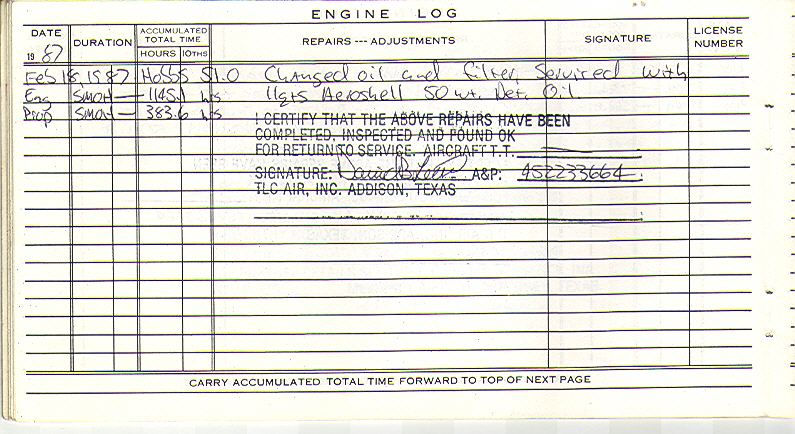 ENGINE LOG
DATE
1987
DURATION
ACCUMULATED
TOTAL TIME
HOURS 10THS
REPAIRS --- ADJUSTMENTS
SIGNATURE
LICENSE
NUMBER
Feb 18, 1987 Hobbs 51.0 Changed oil and filter, Serviced with
Eng SMOH — 1145.1 hrs 11qts Aeroshell 50 wt. Det. Oil
Prop SMOH — 383.6 hrs
I CERTIFY THAT THE ABOVE REPAIRS HAVE BEEN
COMPLETED, INSPECTED AND FOUND OK
FOR RETURN TO SERVICE. AIRCRAFT T.T.
SIGNATURE: A&P: 452233664
TLC AIR, INC. ADDISON, TEXAS
CARRY ACCUMULATED TOTAL TIME FORWARD TO TOP OF NEXT PAGE